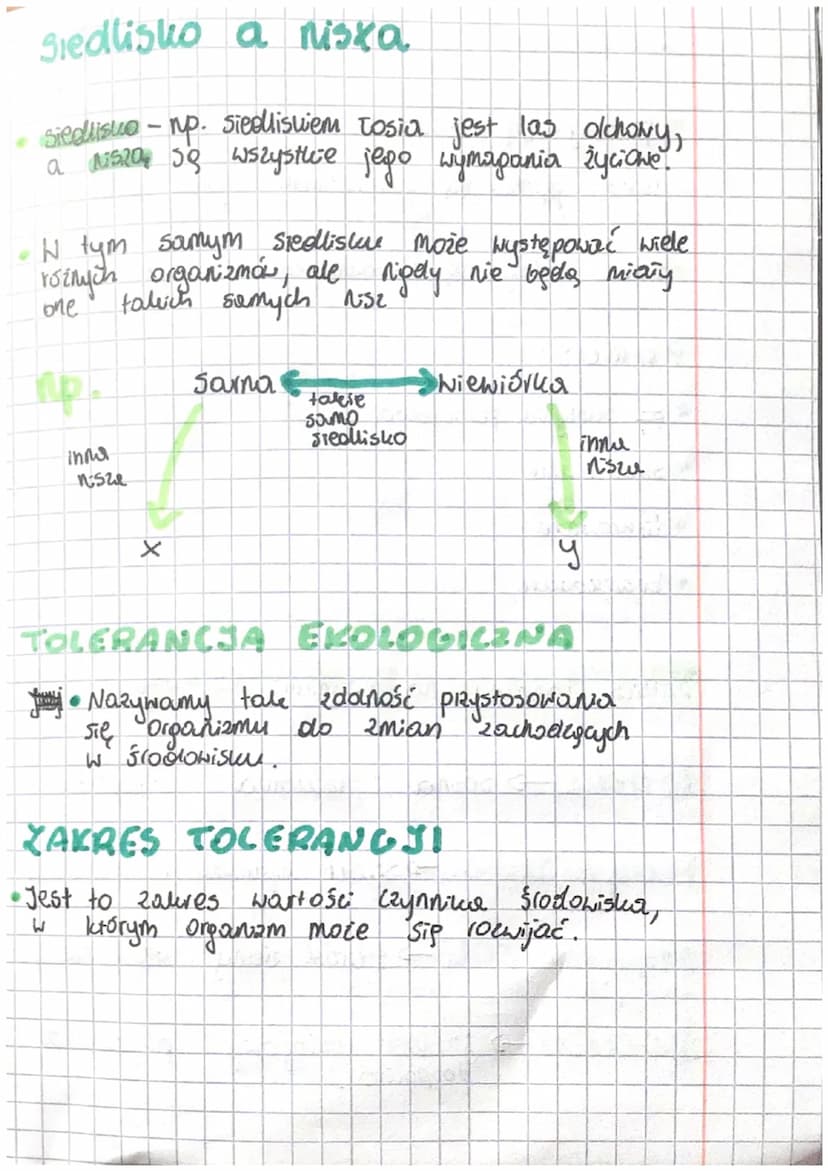 Siedlisko a nisza
• siedlisko – np. siedliskiem łosia jest las olchowy,
a niszą są wszystkie jego wymagania życiowe.
• W tym samym siedlisku może występować wiele
różnych organizmów, ale nigdy nie będą miały
one takich samych nisz
np.
Sarna
wiewiórka
takie
samo
siedlisko
inna
nisza
inna
nisza
x
y
TOLERANCJA EKOLOGICZNA
• Nazywamy tak zdolność przystosowania
się organizmu do zmian zachodzących
w środowisku.
ZAKRES TOLERANCJI
• Jest to zakres wartości czynnika środowiska,
w którym organizm może się rozwijać.